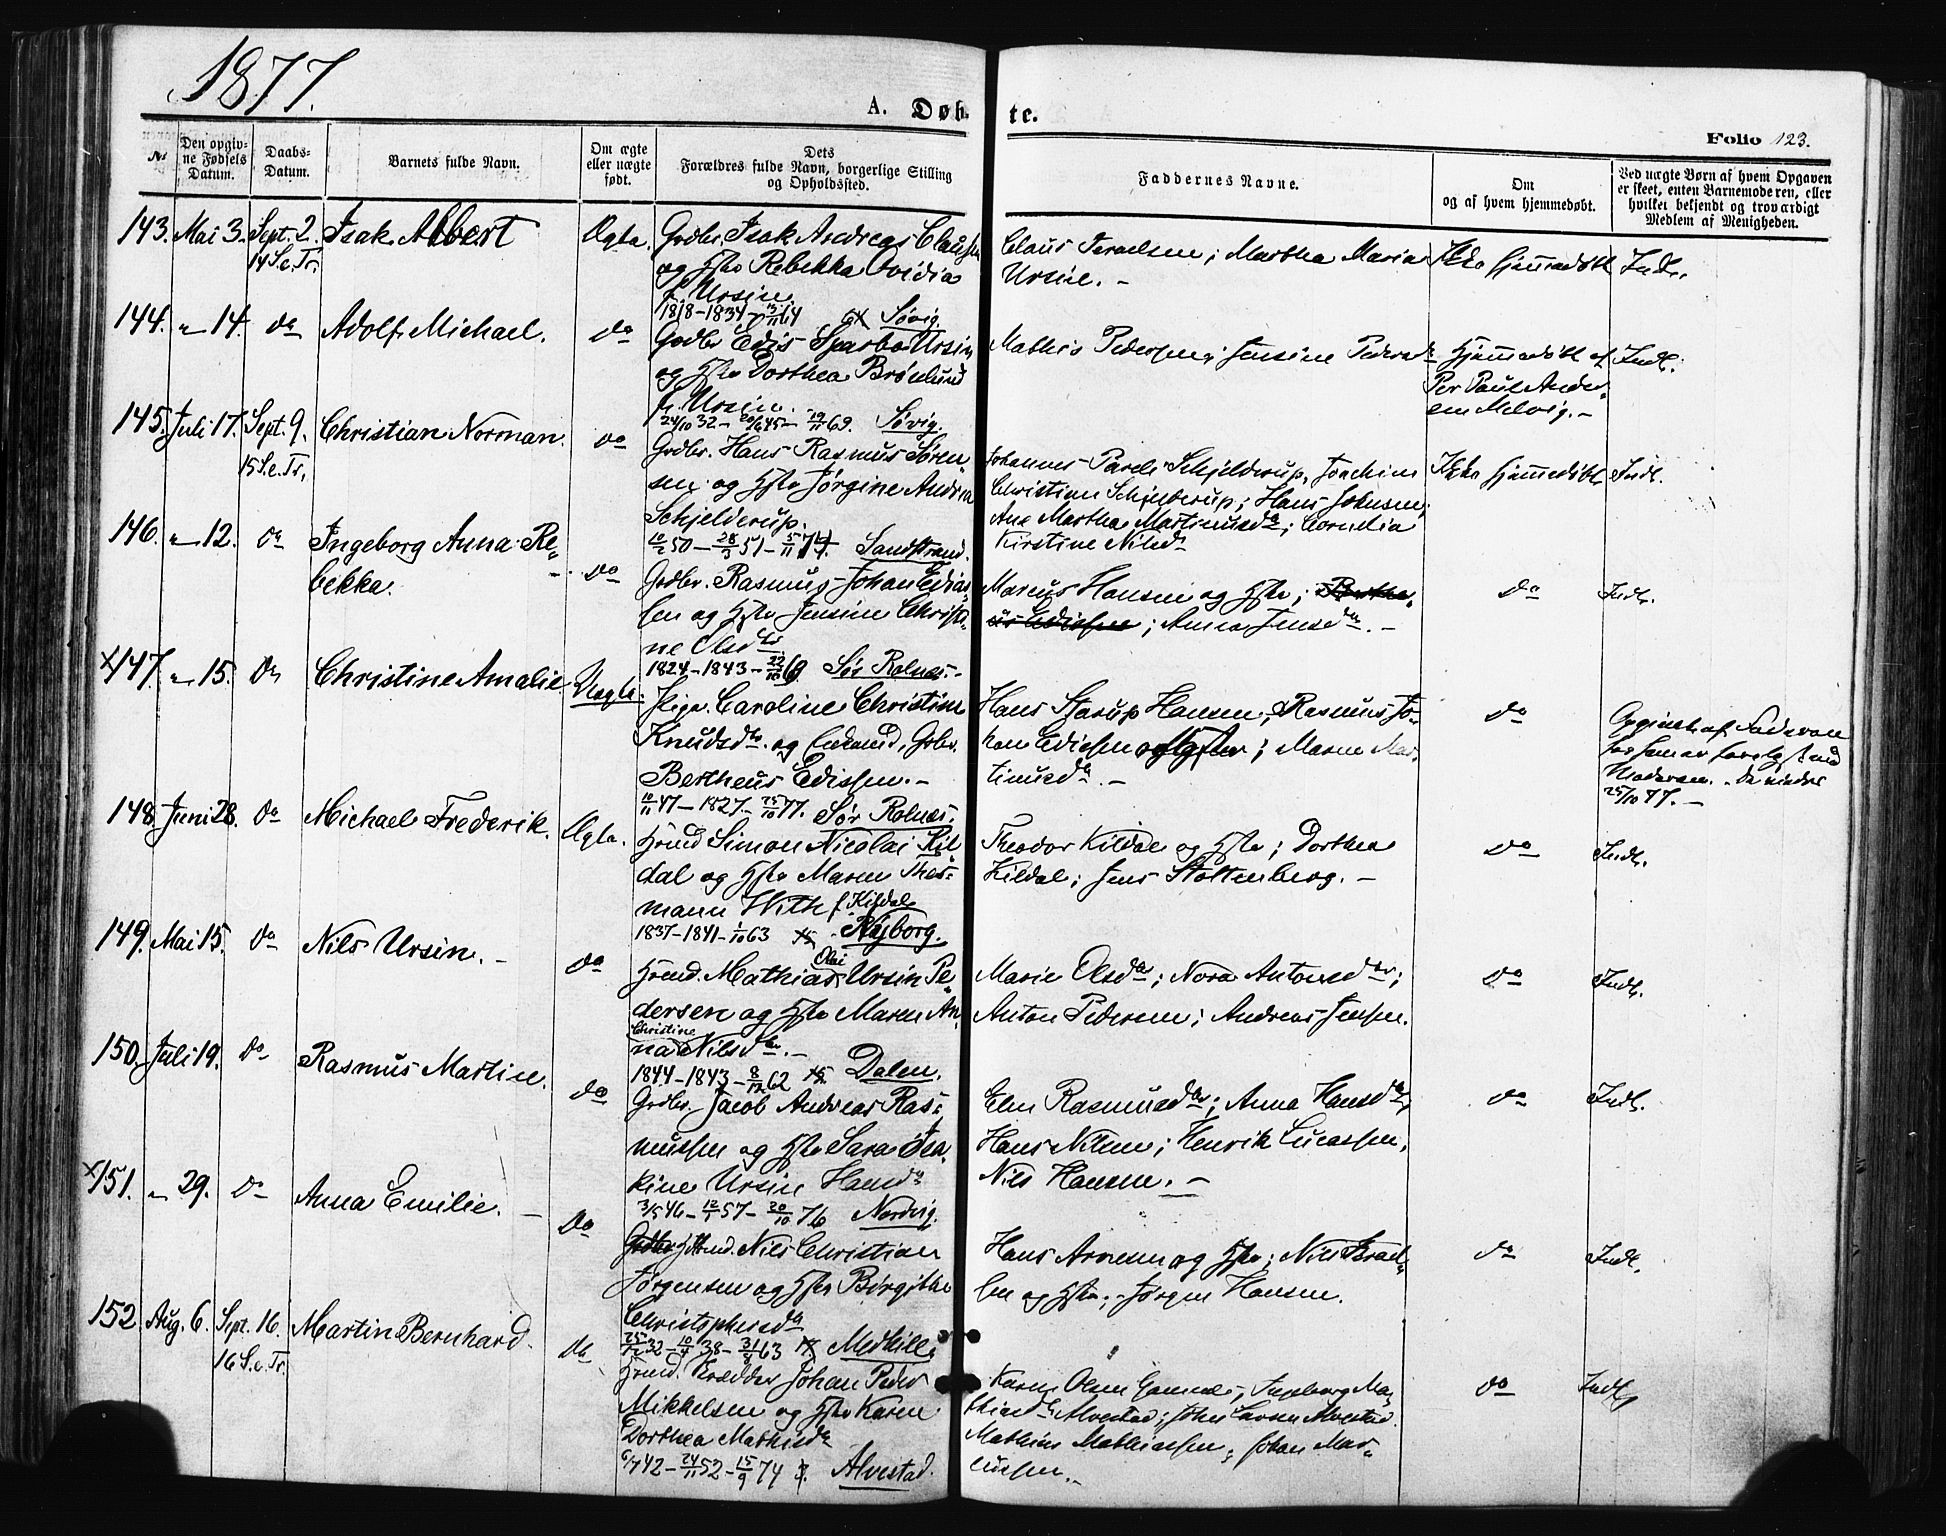 1877.
A. Døb-
te.
Folio 123.
№
Den opgiv-
ne Fødsels
Datum.
Daabs-
Datum.
Barnets fulde Navn.
Om ægte
eller uægte
født.
Dets
Forældres fulde Navn, borgerlige Stilling
og Opholdssted.
Faddernes Navne.
Om
og af hvem hjemmedøbt.
Ved uægte Børn af hvem Opgaven
er skeet, enten Barnemoderen, eller
hvilket bekjendt og troværdigt
Medlem af Menigheden.
143. Mai 3. Sept. 2. Isak Albert Ægte.
14 S. e. Tr.
Grdbr. Isak Andreas Clausen
og Hstr Rebekka Ovidia
f. Ursin.
1818-1834-13/11 64 Søvig.
Claus Israelsen; Martha Maria
Ursin. -
Ikke hjemmedøbt
Indl.
144. " 14. do Adolf Michael. do
Grdbr Edis Sparbo Ursin
og Hstr Dorthea Brønlund
f. Ursin.
24/10 32- 20/6 45- 19/11 69. Søvig.
Mathis Pedersen; Jensine Pedersdr
Hjemmedøbt af
Per Paul Ander-
sen Melvig. -
Indl.
145. Juli 17. Sept. 9. Christian Norman. do
15 S. e. Tr.
Grdbr. Hans Rasmus Søren-
sen og Hstr Jørgine Andrea
Schjelderup.
10/2 50- 28/3 51- 5/11 74. Sandstrand.
Johannes Parels Schjelderup, Joachim
Christian Schjelderup; Hans Johnsen,
Ane Martha Martinusdr; Cornelia
Kirstine Nilsdr
Ikke hjemmedøbt
Indl.
146. " 12. do Ingeborg Anna Re-
bekka. do
Gdbr. Rasmus Johan Edias-
sen og Hstr Jensine Christi-
ne Olsdtr
1824-1843-22/10 69 Sør Rolnes. -
Marcus Hansen og Hstr;
; Anna Jensdr. -
do
Indl.
x147. " 15. do Christine Amalie Uægte.
Pige Caroline Christine
Knudsdtr. og Enkemd, Grbr.
Bertheus Edissen. -
10/11 47- 1827- 25/10 77. Sør Rolnes.
Hans Starup Hansen; Rasmus Jo-
han Edissen og Hstr; Maren Mar-
tinusdr. -
do
Opgivet af Faderen
Moderen.
25/10 77. -
148. Juni 28. do Michael Frederik. Ægte.
Hrmd Simon Nicolai Kil-
dal og Hstr Maren Thes-
mann With f. Kildal
1837-1841-1/10 63 Nyborg.
Theodor Kildal og Hstr; Dorthea
Kildal; Jens Stoltenberg. -
do
Indl.
149. Mai 15. do Nils Ursin. - do
Hrmd. Mathias Olai Ursin Pe-
dersen og Hstr Maren An-
na Christine Nilsdtr. -
1844-1843-8/12 62 Dalen.
Marie Olsdtr; Nora Antonsdtr;
Anton Pedersen; Andreas Jensen.
do
Indl.
150. Juli 19. do Rasmus Martin. do
Grdbr. Jacob Andreas Ras-
mussen og Hstr Sara Isa-
kine Ursin Hansdr
3/5 46- 12/1 57- 20/10 76 Nordvig.
Elen Rasmusdtr; Anna Hansdr,
Hans Nilsen; Henrik Lucassen,
Nils Hansen. -
do
Indl.
x151. " 29. do Anna Emilie. - do
Hrmd. Nils Christian
Jørgensen og Hstr Birgithe
Christophersdr
25/12 32- 10/4 38- 31/8 63 Medkill.
Hans Arnesen og Hstr; Nils Israel-
sen og Hstr; Jørgen Hansen.
do
Indl.
152 Aug. 6. Sept. 16. Martin Bernhard. do
16 S. e. Tr.
Hrmd. Skrædder Johan Peder
Mikkelsen og Hstr Karen
Dorthea Mathisdr
6/7 42- 24/11 52- 15/9 74 Alvestad.
Karen Olsen; Ingeborg Ma-
thiasdr Alvestad; John Larsen Alvestad
Mathias Mathiassen; Johan Mar-
cussen. -
do
Indl.